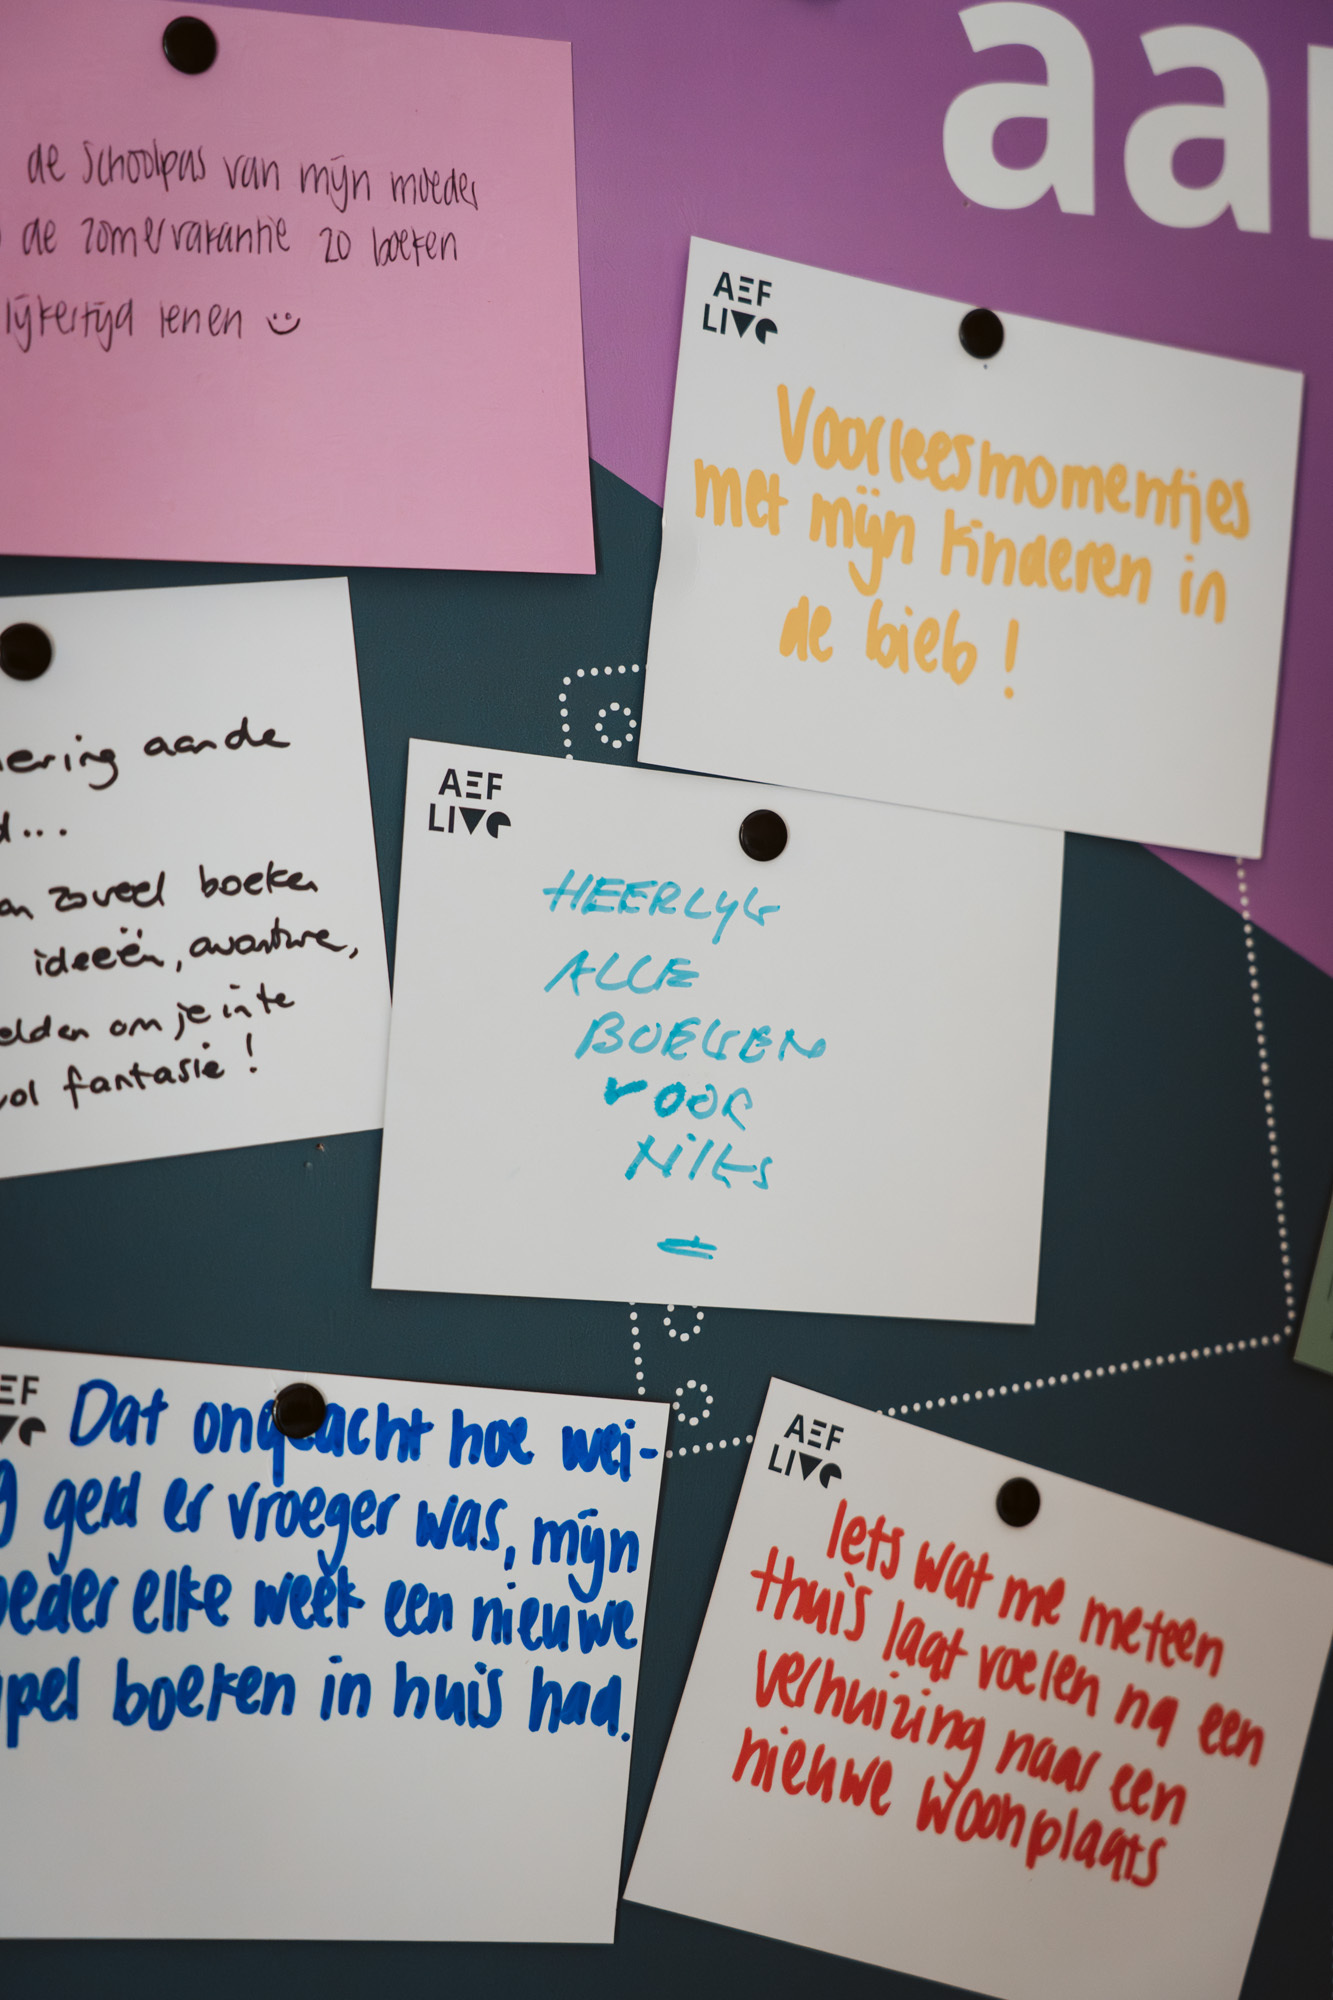 aa
de schoolpas van mijn moeder
de zomervakantie 20 boeken
lijkertijd lenen
AEF
LIVE
Voorleesmomentjes
met mijn kinderen in
de bieb!
ering aan de
d...
an zoveel boeken
ideeën, avonture,
elden om je in te
vol fantasie!
AEF
LIVE
HEERLYK
ALLE
BOEKEN
VOOR
NIKS
EF
VE
Dat ongeacht hoe wei-
g geld er vroeger was, mijn
oeder elke week een nieuwe
apel boeken in huis had.
AEF
LIVE
Iets wat me meteen
thuis laat voelen na een
verhuizing naar een
nieuwe woonplaats